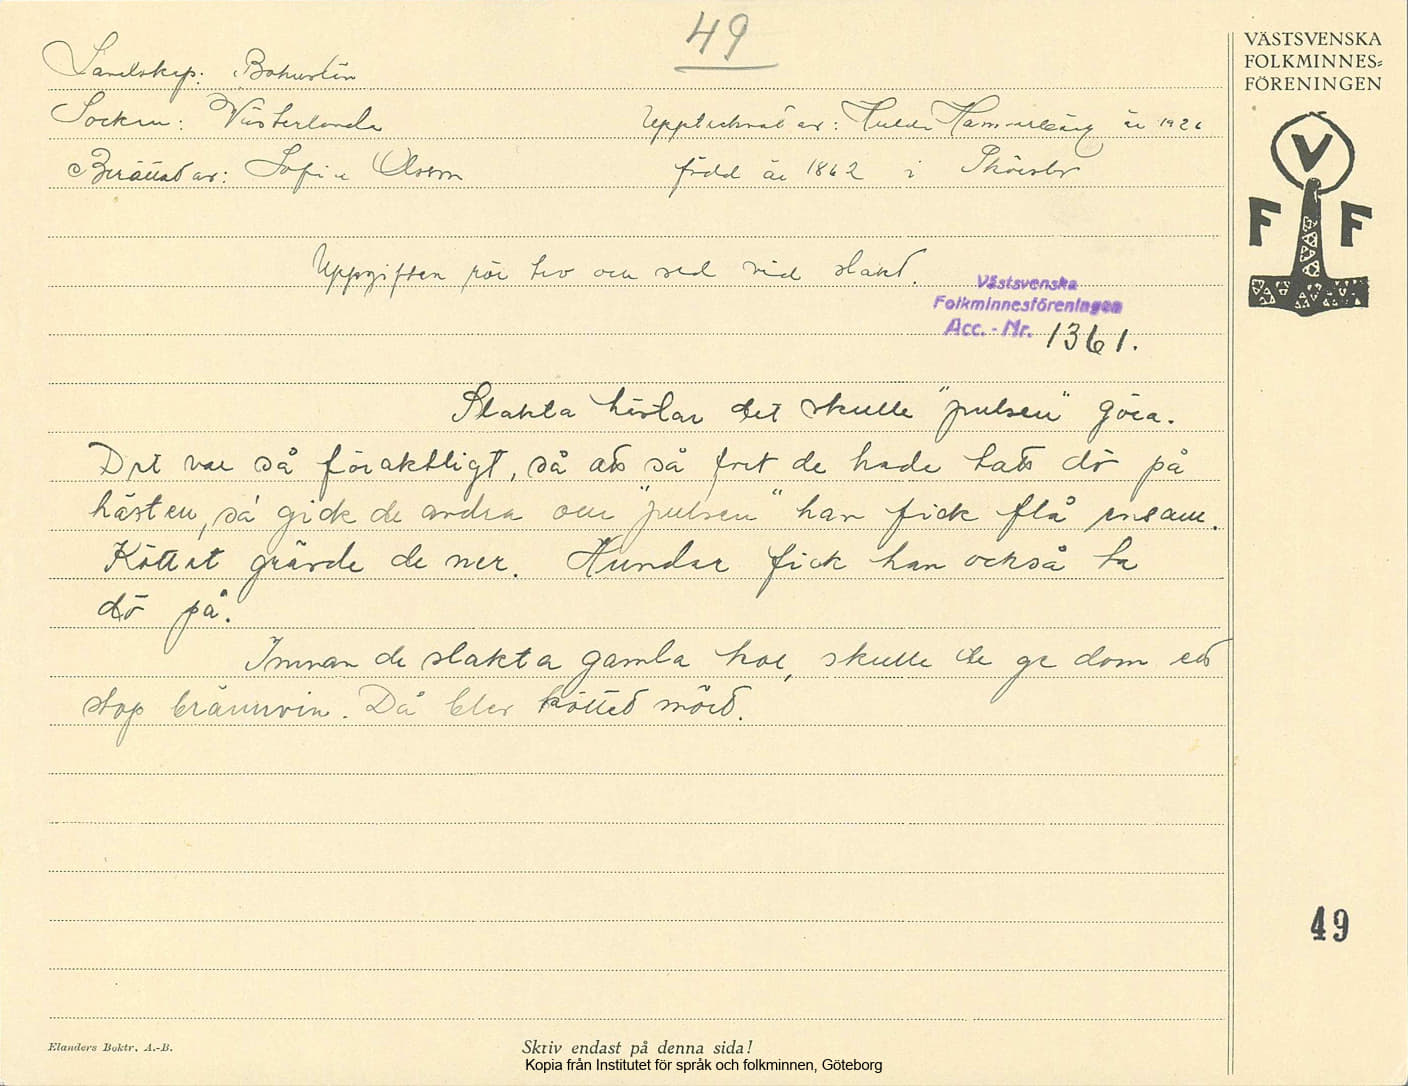 49
VÄSTSVENSKA
FOLKMINNES=
FÖRENINGEN
Landskap: Bohuslän
Socken: Västerlanda
Upptecknat av: Hulda Hammarbäck år 1926
Berättat av: Sofia Olsson
född år 1862 i
V
F F
Uppgiften rör tro och sed vid slakt.
Västsvenska
Folkminnesföreningen
Acc. - Nr. 1361.
Slakta hästar det skulle "pulsen" göra.
Det var så föraktligt, så att så fort de hade tatt dö på
hästen, så gick de andra och "pulsen" han fick flå ensam.
Köttet grävde de ner. Hundar fick han också ta
dö på.
Innan de slakta gamla kor, skulle de ge dom ett
stop brännvin. Då blev köttet mört.
49
Elanders Boktr. A.-B.
Skriv endast på denna sida!
Kopia från Institutet för språk och folkminnen, Göteborg